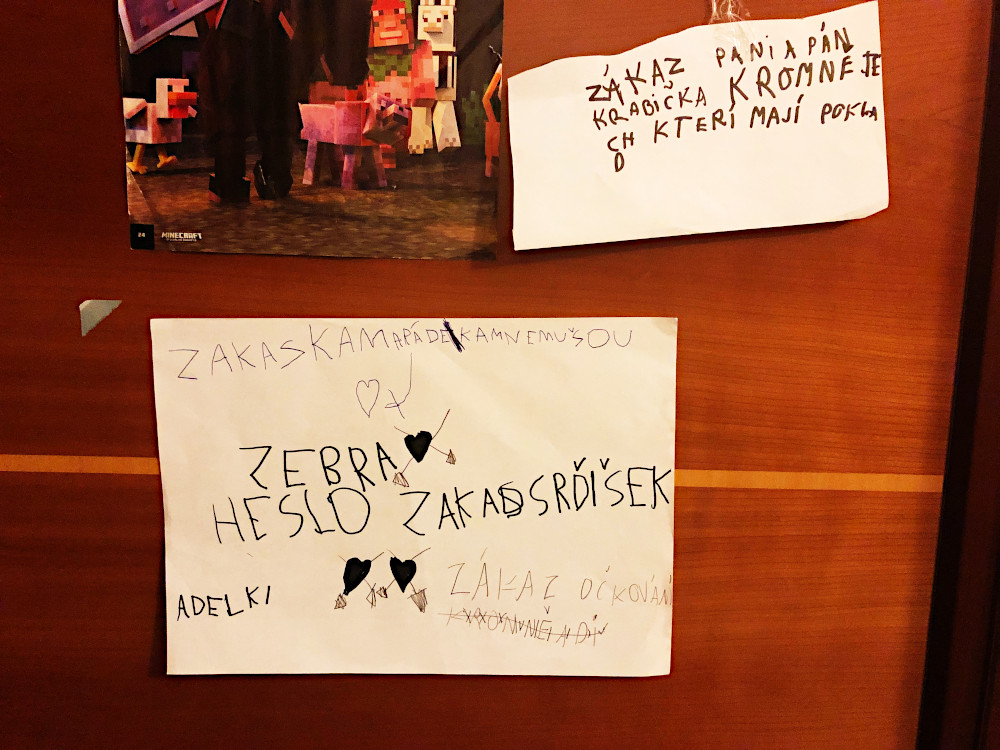 24 MINECRAFT
ZÁKAZ PANI A PÁN
KRABIČKA KROMNĚ JE
CH KTERÍ MAJÍ POKLA
D
ZAKAS KAMAPÁDE KAMNEMUŠOU
ZEBRA
HESLO ZAKADSRĎÍŠEK
ADELKI
ZÁKAZ OČKOVÁNÍ